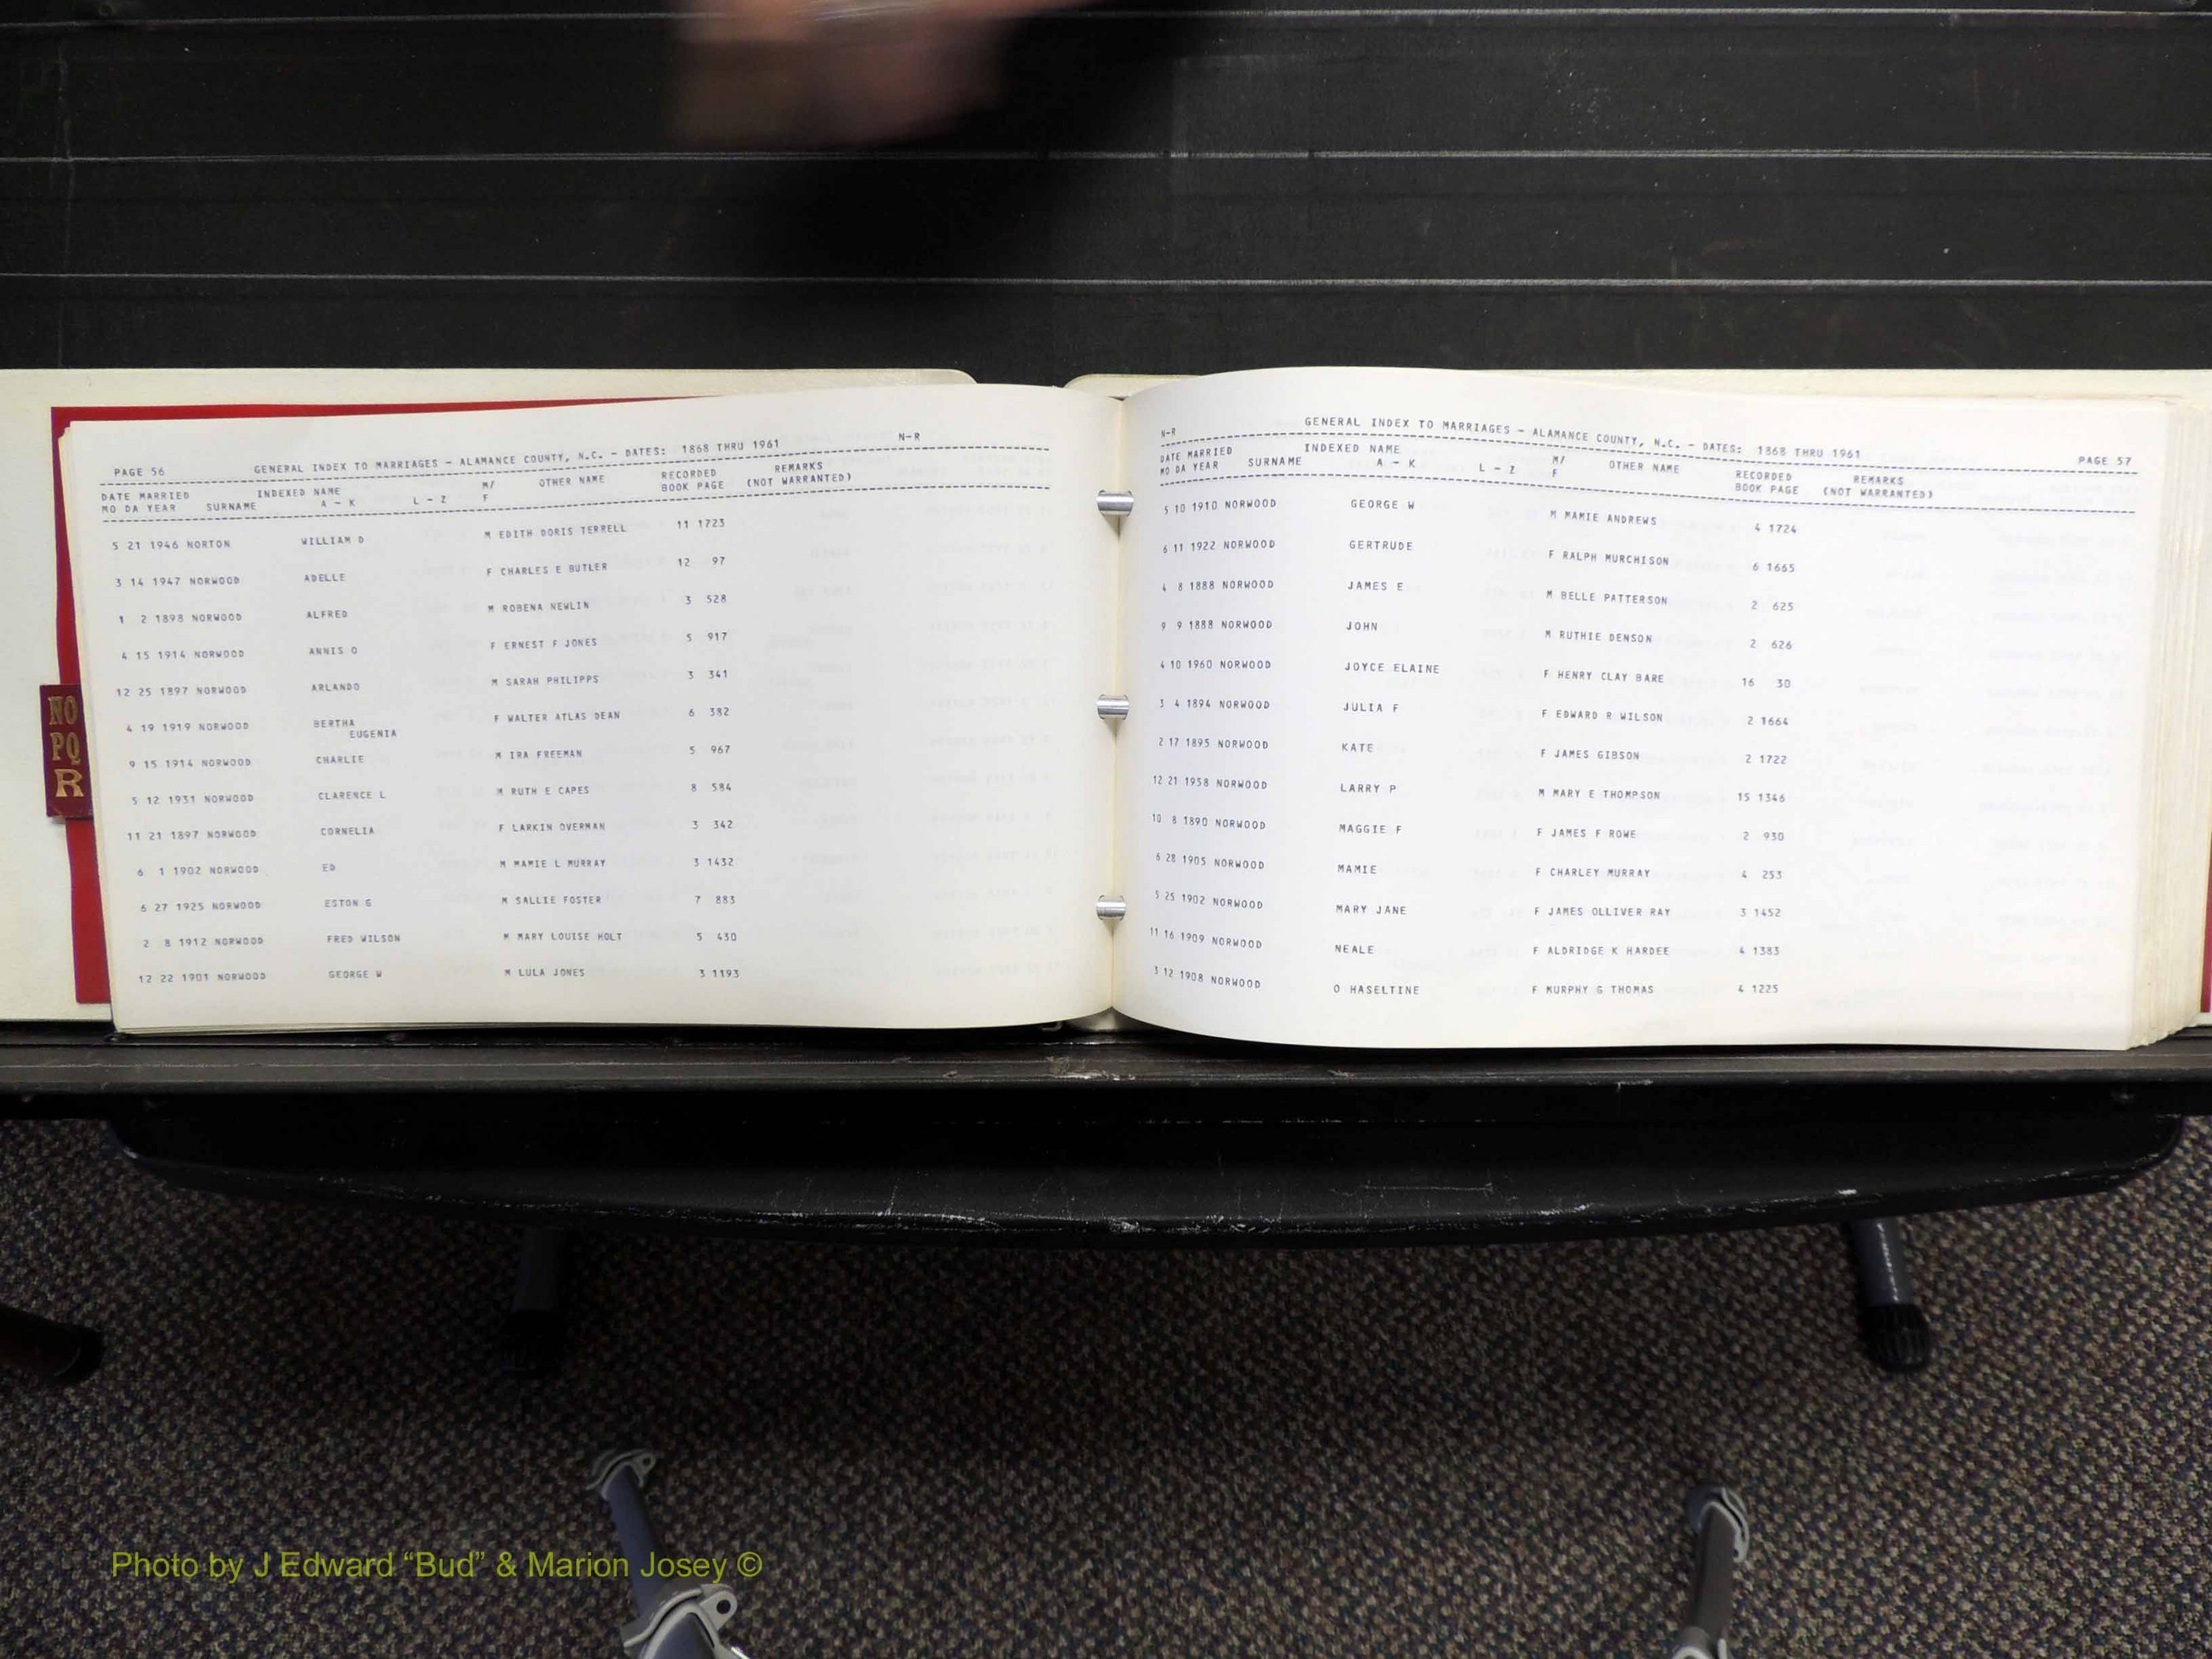 NO
PQ
R
PAGE 56 GENERAL INDEX TO MARRIAGES - ALAMANCE COUNTY, N.C. - DATES: 1868 THRU 1961 N-R
DATE MARRIED INDEXED NAME M/ OTHER NAME RECORDED REMARKS
MO DA YEAR SURNAME A - K L - Z F BOOK PAGE (NOT WARRANTED)
5 21 1946 NORTON WILLIAM D M EDITH DORIS TERRELL 11 1723
3 14 1947 NORWOOD ADELLE F CHARLES E BUTLER 12 97
1 2 1898 NORWOOD ALFRED M ROBENA NEWLIN 3 528
4 15 1914 NORWOOD ANNIS O F ERNEST F JONES 5 917
12 25 1897 NORWOOD ARLANDO M SARAH PHILIPPS 3 341
4 19 1919 NORWOOD BERTHA F WALTER ATLAS DEAN 6 382
EUGENIA
9 15 1914 NORWOOD CHARLIE M IRA FREEMAN 5 967
5 12 1931 NORWOOD CLARENCE L M RUTH E CAPES 8 584
11 21 1897 NORWOOD CORNELIA F LARKIN OVERMAN 3 342
6 1 1902 NORWOOD ED M MAMIE L MURRAY 3 1432
6 27 1925 NORWOOD ESTON G M SALLIE FOSTER 7 883
2 8 1912 NORWOOD FRED WILSON M MARY LOUISE HOLT 5 430
12 22 1901 NORWOOD GEORGE W M LULA JONES 3 1193
N-R GENERAL INDEX TO MARRIAGES - ALAMANCE COUNTY, N.C. - DATES: 1868 THRU 1961 PAGE 57
DATE MARRIED INDEXED NAME M/ OTHER NAME RECORDED REMARKS
MO DA YEAR SURNAME A - K L - Z F BOOK PAGE (NOT WARRANTED)
5 10 1910 NORWOOD GEORGE W M MAMIE ANDREWS 4 1724
6 11 1922 NORWOOD GERTRUDE F RALPH MURCHISON 6 1665
4 8 1888 NORWOOD JAMES E M BELLE PATTERSON 2 625
9 9 1888 NORWOOD JOHN M RUTHIE DENSON 2 626
4 10 1960 NORWOOD JOYCE ELAINE F HENRY CLAY BARE 16 30
3 4 1894 NORWOOD JULIA F F EDWARD R WILSON 2 1664
2 17 1895 NORWOOD KATE F JAMES GIBSON 2 1722
12 21 1958 NORWOOD LARRY P M MARY E THOMPSON 15 1346
10 8 1890 NORWOOD MAGGIE F F JAMES F ROWE 2 930
6 28 1905 NORWOOD MAMIE F CHARLEY MURRAY 4 253
5 25 1902 NORWOOD MARY JANE F JAMES OLLIVER RAY 3 1452
11 16 1909 NORWOOD NEALE F ALDRIDGE K HARDEE 4 1383
3 12 1908 NORWOOD O HASELTINE F MURPHY G THOMAS 4 1225
Photo by J Edward “Bud” & Marion Josey ©